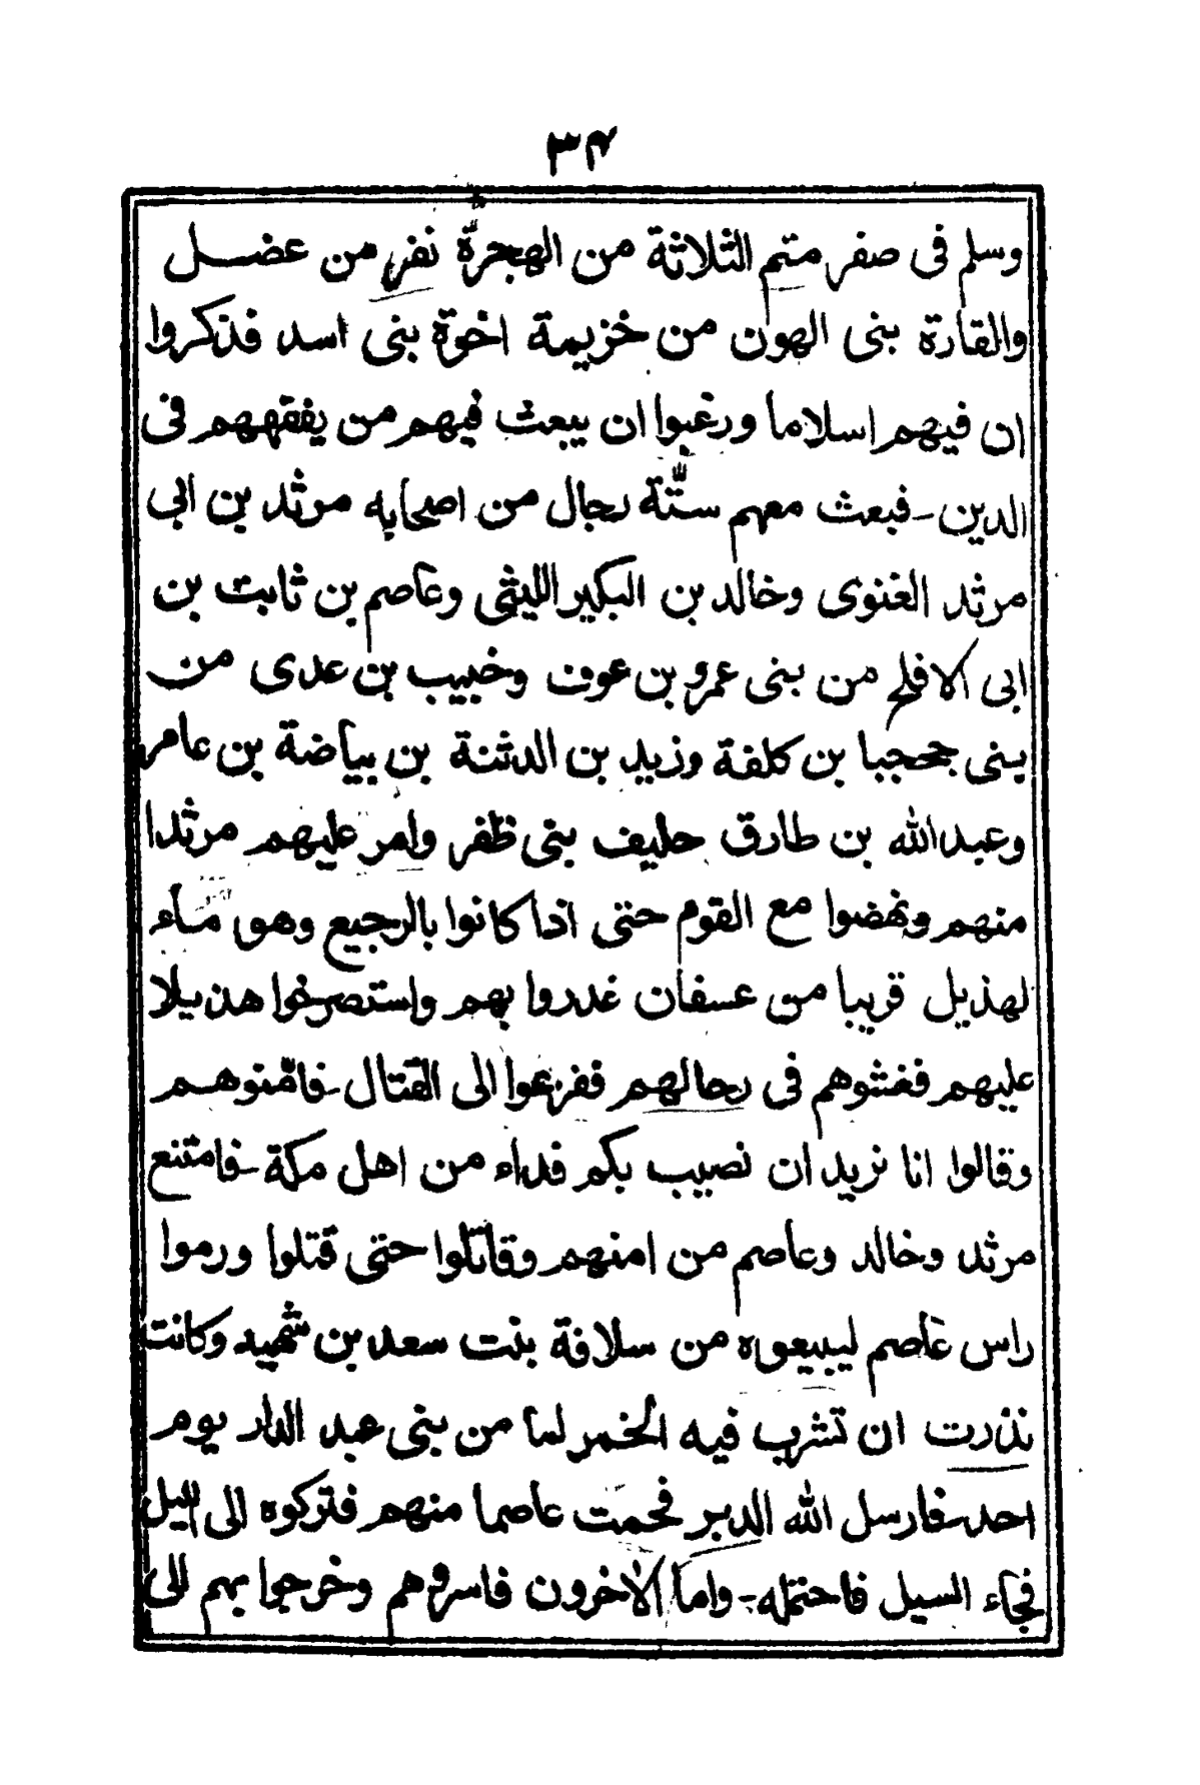 ۳۴
وسلم فى صفر متم الثلاثة من الهجرة نفر من عضل
والقارة بنى الهون من خزيمة اخوة بنى اسد فذكروا
ان فيهم اسلاما ورغبوا ان يبعث فيهم من يفقههم فى
الدين - فبعث معهم ستّة رجال من اصحابه مرثد بن ابى
مرثد الغنوى وخالد بن البكير الليثى وعاصم بن ثابت بن
ابى الافلح من بنى عمرو بن عوف وخبيب بن عدى من
بنى جحجبا بن كلفة وزيد بن الدثنة بن بياضة بن عامر
وعبد الله بن طارق حليف بنى ظفر وامر عليهم مرثدا
منهم ونهضوا مع القوم حتى اذا كانوا بالرجيع وهو ماء
لهذيل قريبا من عسفان غدروا بهم واستصرخوا هذيلا
عليهم فغشوهم فى رحالهم ففزعوا الى القتال - فامّنوهم
وقالوا انا نريد ان نصيب بكم فداء من اهل مكة - فامتنع
مرثد وخالد وعاصم من امنهم وقاتلوا حتى قتلوا ورموا
راس عاصم ليبيعوه من سلافة بنت سعد بن شهيد وكانت
نذرت ان تشرب فيه الخمر لما من بنى عبد الدار يوم
احد - فارسل الله الدبر فحمت عاصما منهم فتركوه الى الليل
فجاء السيل فاحتمله - واما الاخرون فاسروهم وخرجوا بهم الى